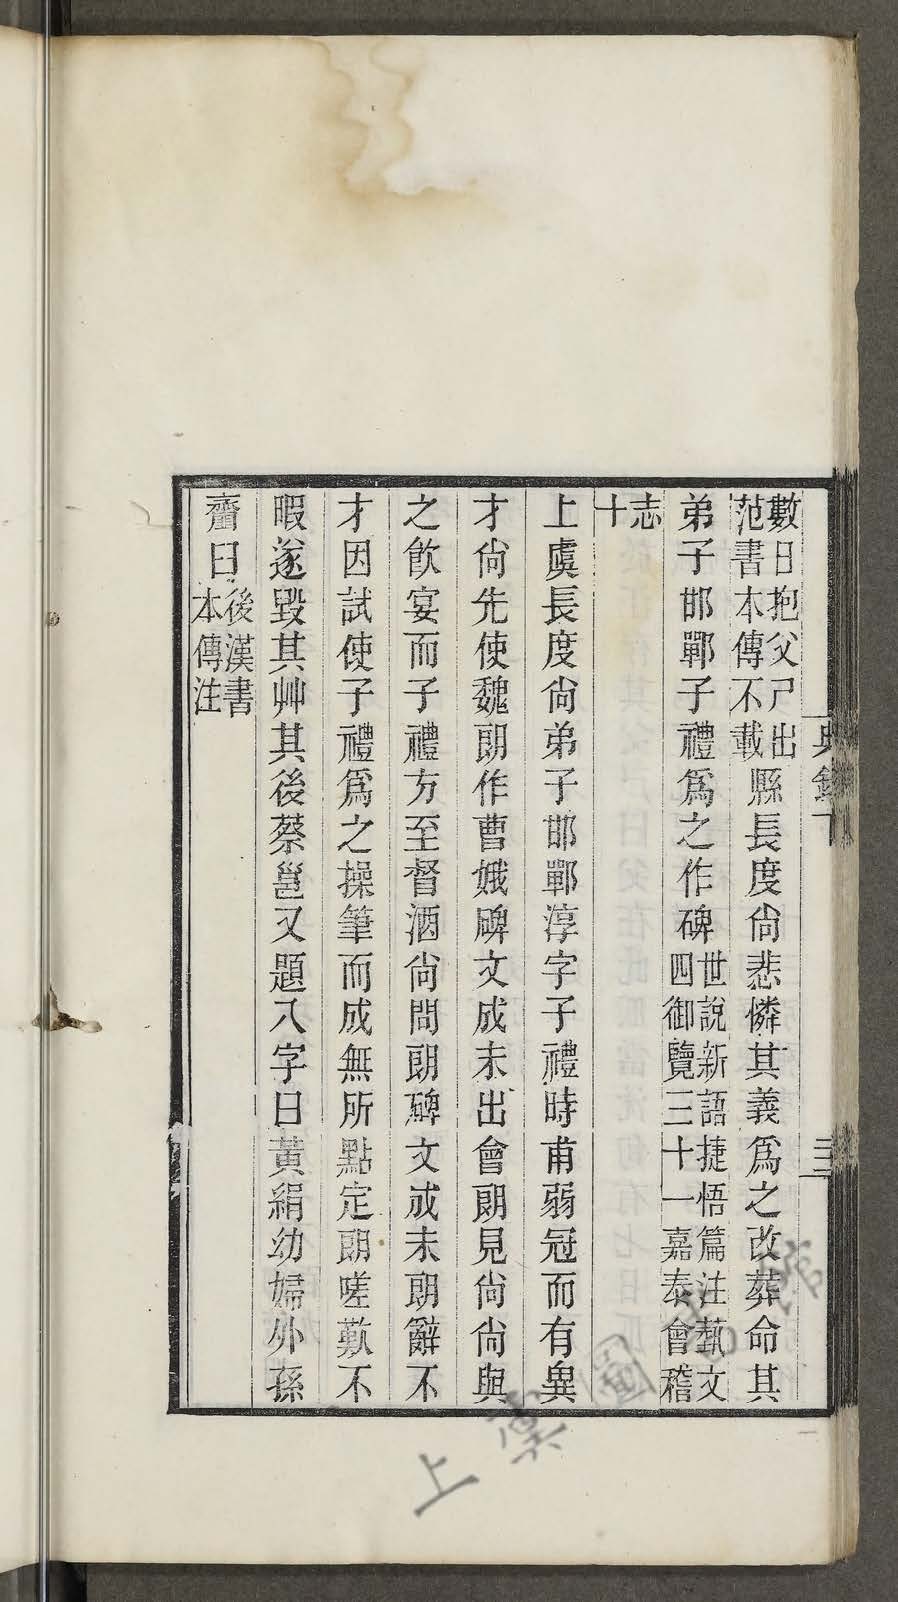 數日抱父尸出范書本傳不載縣長度尚悲憐其義爲之改葬命其
弟子邯鄲子禮爲之作碑世說新語捷悟篇注蓺文四御覽三十一嘉泰會稽
志十
上虞長度尚弟子邯鄲淳字子禮時甫弱冠而有異
才尚先使魏朗作曹娥碑文成未出會朗見尚尚與
之飲宴而子禮方至督酒尚問朗碑文成未朗辭不
才因試使子禮爲之操筆而成無所點定朗嗟歎不
暇遂毀其艸其後蔡邕又題八字曰黃絹幼婦外孫
齏臼後漢書本傳注
典錄下
上虞圖書館